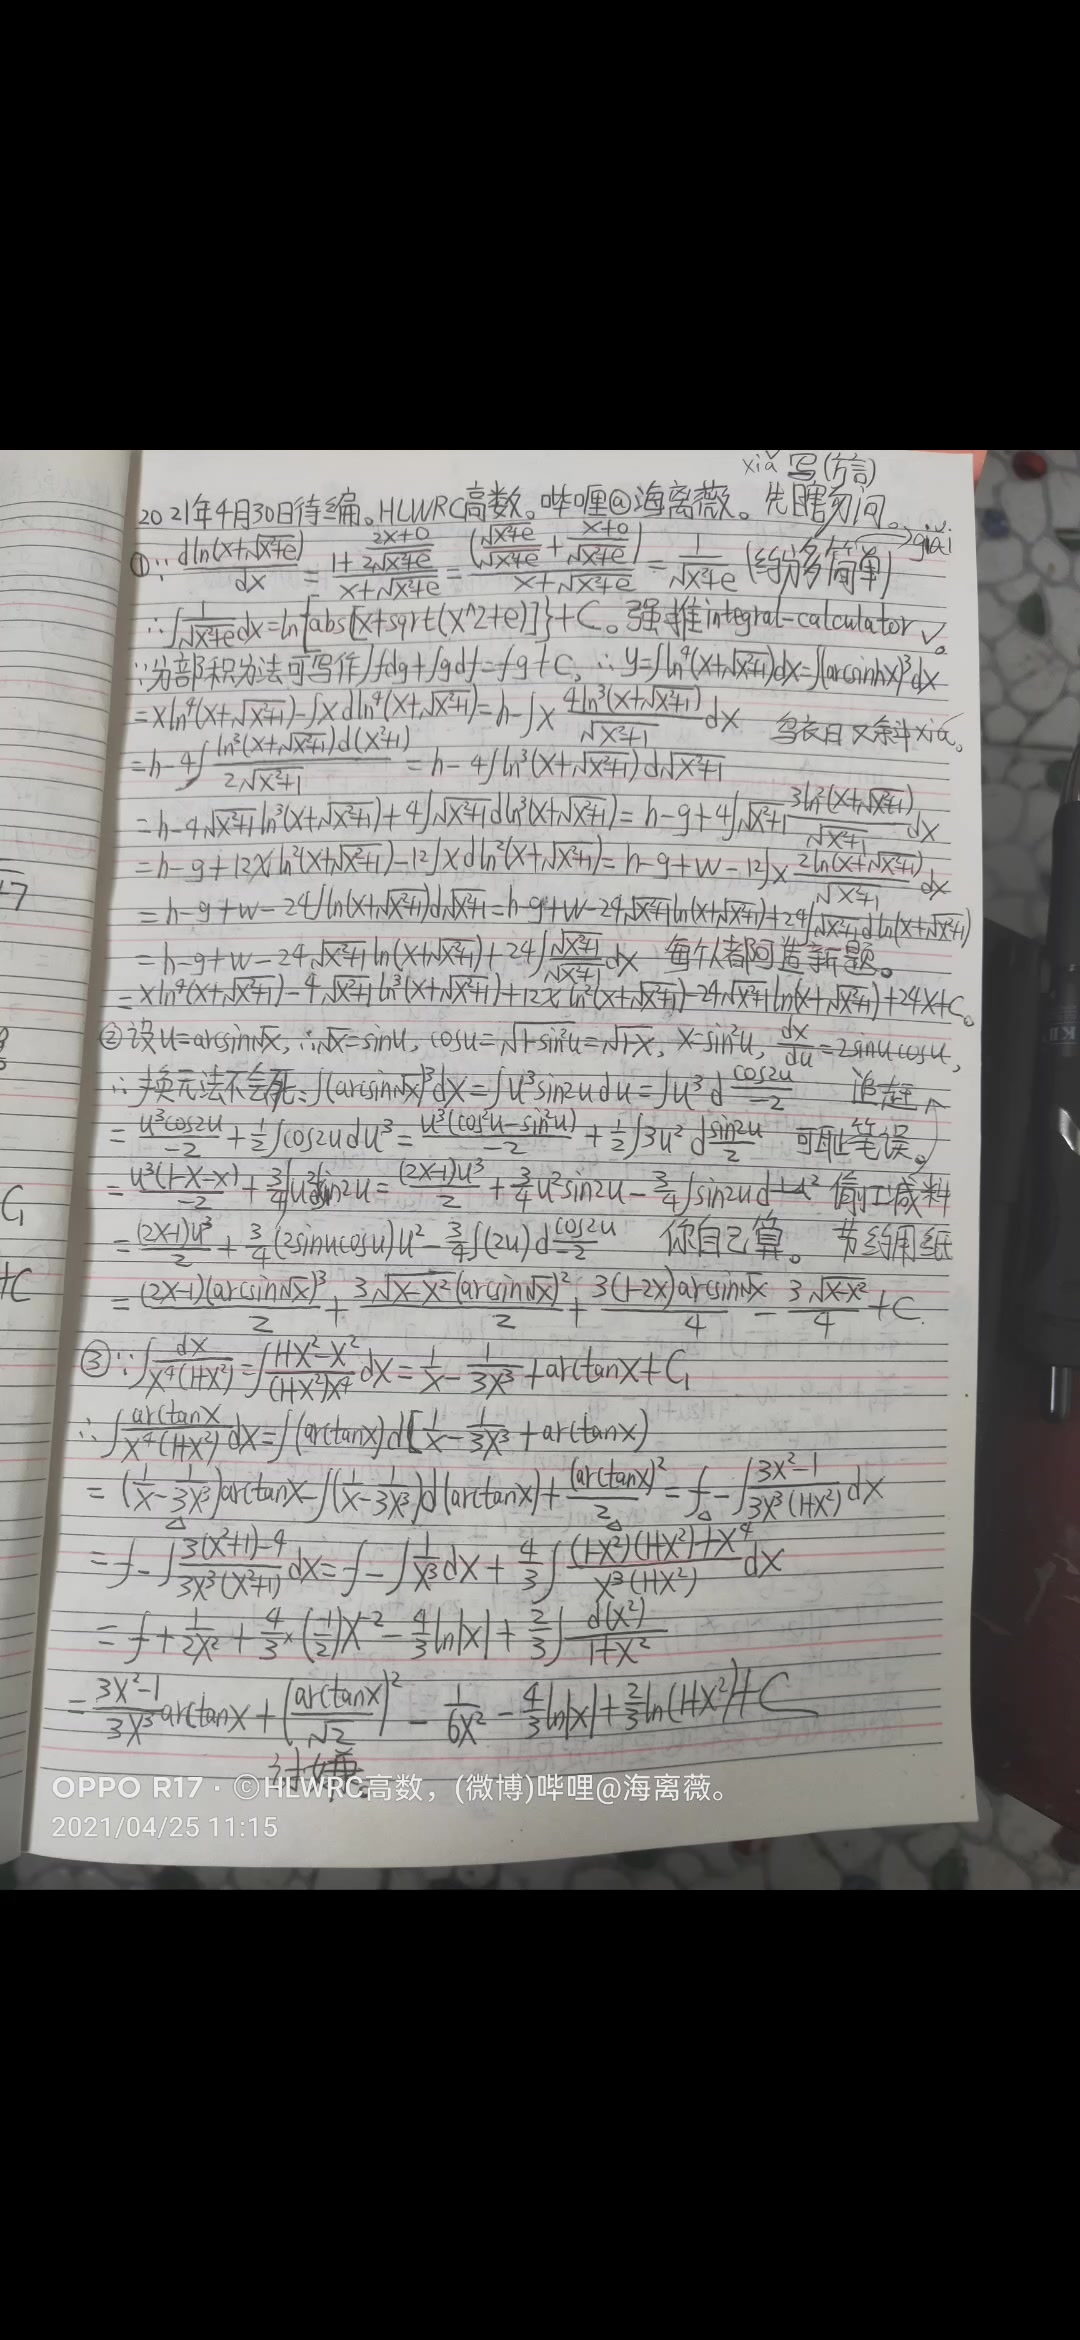 xiǎ 写(方言)
2021年4月30日待编。HLWRC高数。哔哩@海离薇。先瞎勿问。
①∵ dln(x+√(x²+e))/dx = (1+(2x+0)/(2√(x²+e)))/(x+√(x²+e)) = (√(x²+e)/√(x²+e) + (x+0)/√(x²+e))/(x+√(x²+e)) = 1/√(x²+e) (约分多简单)
∴∫1/√(x²+e)dx=ln{abs[x+sqrt(x^2+e)]}+C。强推integral-calculator√。
∵分部积分法可写作∫fdg+∫gdf=fg+C, ∴y=∫ln⁴(x+√(x²+1))dx=∫(arcsinhx)³dx
=xln⁴(x+√(x²+1))-∫xdln⁴(x+√(x²+1))=h-∫x 4ln³(x+√(x²+1))/√(x²+1) dx
=h-4∫ln³(x+√(x²+1))d(x²+1)/(2√(x²+1)) =h-4∫ln³(x+√(x²+1))d√(x²+1)
=h-4√(x²+1)ln³(x+√(x²+1))+4∫√(x²+1)dln³(x+√(x²+1))=h-g+4∫√(x²+1) 3ln²(x+√(x²+1))/√(x²+1) dx
=h-g+12xln²(x+√(x²+1))-12∫xdln²(x+√(x²+1))=h-g+w-12∫x 2ln(x+√(x²+1))/√(x²+1) dx
=h-g+w-24∫ln(x+√(x²+1))d√(x²+1)=h-g+w-24√(x²+1)ln(x+√(x²+1))+24∫√(x²+1)dln(x+√(x²+1))
=h-g+w-24√(x²+1)ln(x+√(x²+1))+24∫√(x²+1)/√(x²+1) dx 每个人都可造新题。
=xln⁴(x+√(x²+1))-4√(x²+1)ln³(x+√(x²+1))+12xln²(x+√(x²+1))-24√(x²+1)ln(x+√(x²+1))+24x+C。
②设u=arcsin√x, ∴√x=sinu, cosu=√(1-sin²u)=√(1-x), x=sin²u, dx/du=2sinucosu,
∴换元法不会死:∫(arcsin√x)³dx=∫u³sin2udu=∫u³d cos2u/-2 追赶
=u³cos2u/-2+½∫cos2udu³=u³(cos²u-sin²u)/-2+½∫3u²d sin2u/2 可耻笔误。
=u³(1-x-x)/-2+¾∫u²dsin2u=(2x-1)u³/2+¾u²sin2u-¾∫sin2udu² 偷工减料
=(2x-1)u³/2+¾(2sinucosu)u²-¾∫(2u)d cos2u/-2 你自己算。 节约用纸
=(2x-1)(arcsin√x)³/2+3√(x-x²)(arcsin√x)²/2+3(1-2x)arcsin√x/4-3√(x-x²)/4+C.
③∵∫dx/(x⁴(1+x²))=∫(1+x²-x²)/((1+x²)x⁴)dx=1/x-1/(3x³)+arctanx+C₁
∴∫arctanx/(x⁴(1+x²))dx=∫(arctanx)d[1/x-1/(3x³)+arctanx)
=(1/x-1/(3x³))arctanx-∫(1/x-1/(3x³))d(arctanx)+(arctanx)²/2=f-∫(3x²-1)/(3x³(1+x²))dx
=f-∫(3(x²+1)-4)/(3x³(x²+1))dx=f-∫1/x³dx+4/3∫((1-x²)(1+x²)+x⁴)/(x³(1+x²))dx
=f+1/(2x²)+4/3×(-1/2)x⁻²-4/3ln|x|+2/3∫d(x²)/(1+x²)
=(3x²-1)/(3x³)arctanx+(arctanx/√2)²-1/(6x²)-4/3ln|x|+2/3ln(1+x²)+C
讨嫌
OPPO R17 · ©HLWRC高数，(微博)哔哩@海离薇。
2021/04/25 11:15